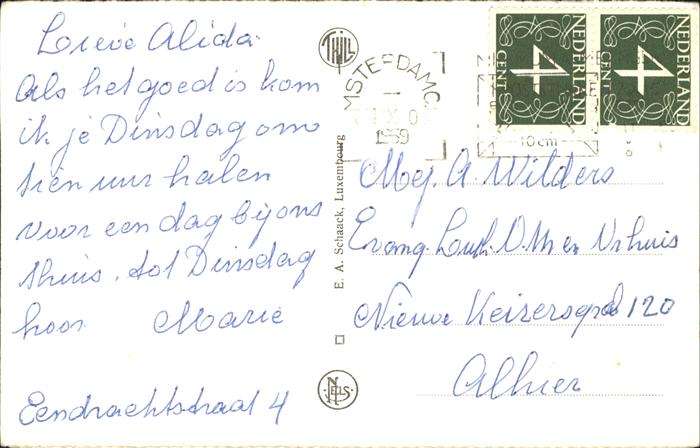 Lieve Alida.
Als het goed is kom
ik je Dinsdag omo
tien uur halen
voor een dag bij ons
thuis. tot Dinsdag
hoor Marie
Eendrachtstraat 4
THILL
E. A. Schaack, Luxembourg
NELS
MSTERDAM C
1959
10cm
NEDERLAND
4
CENT
NEDERLAND
4
CENT
Mej. A. Wilders
Evang. Luth. D. M en Vrhuis
Nieuwe Keizersgr 120
Alhier